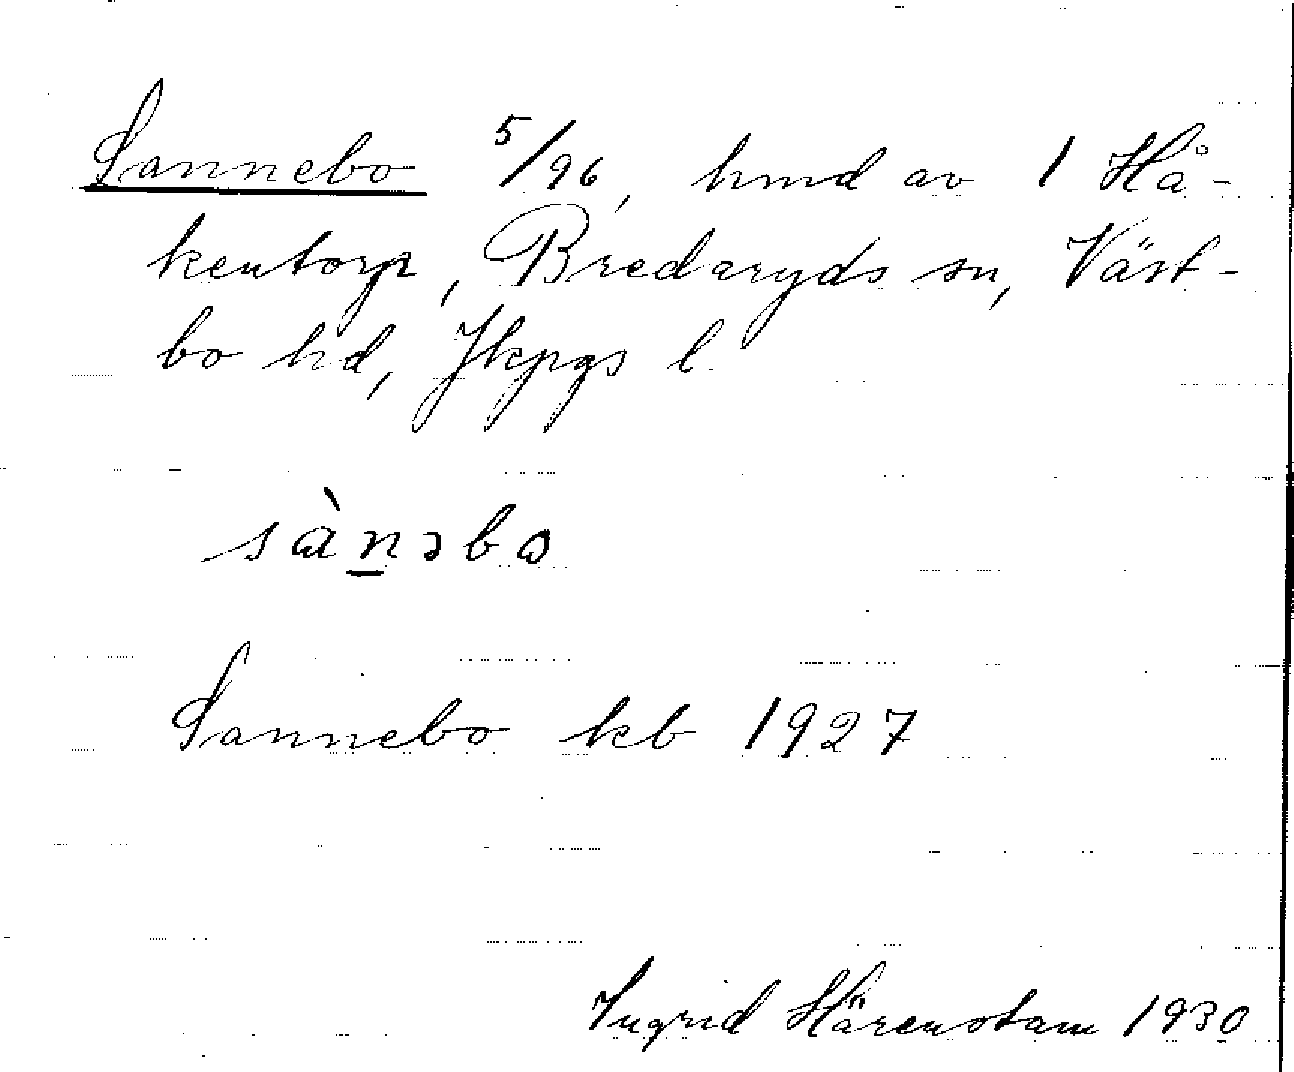 Sannebo 5/96, hmd av 1 Hå-
kentorp, Bredaryds sn, Väst-
bo hd, Jkpgs l.
sànəbo
Sannebo kb 1927
Ingrid Härenstam 1930